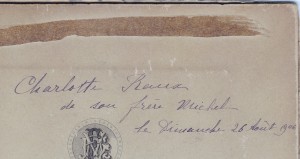 Charlotte
de son frère Michel
le Dimanche 26 Août 1900